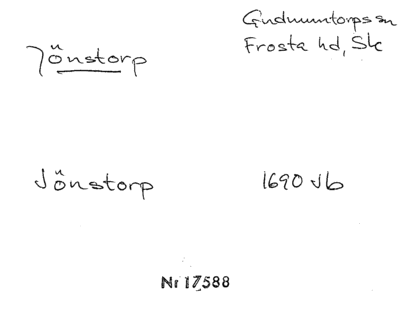 Gudmuntorps sn
Frosta hd, Sk
Jönstorp
Jönstorp 1690 Jb
Nr 17588